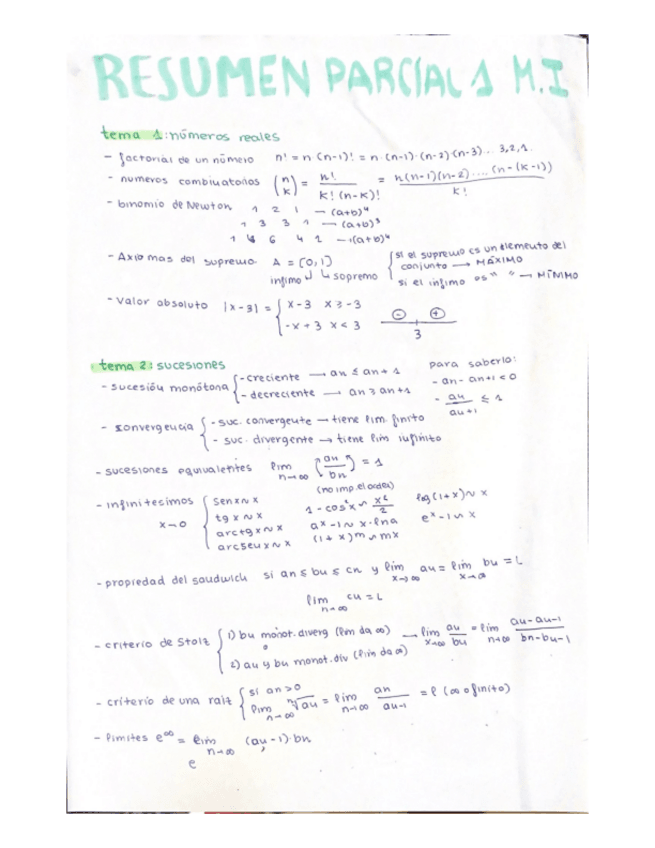 RESUMEN PARCIAL 1 M.I
tema 1: números reales
- factorial de un número n! = n (n-1)! = n·(n-1)·(n-2)·(n-3)... 3,2,1.
- numeros combinatorios (n k) = n! / k! (n-k)! = n(n-1)(n-2)....(n-(k-1)) / k!
- binomio de Newton 1 2 1 — (a+b)⁴
1 3 3 1 — (a+b)³
1 4 6 4 1 — (a+b)⁴
- Axiomas del supremo. A = [0,1]
infimo supremo
si el supremo es un elemento del
conjunto → MÁXIMO
si el infimo es " " → MÍNIMO
- Valor absoluto |x-3| = { x-3 x ≥ -3
-x+3 x < 3
⊖ ⊕
3
tema 2: sucesiones
- sucesión monótona { - creciente → an ≤ an+1
- decreciente → an ≥ an+1
para saberlo:
- an - an+1 < 0
- an / an+1 ≤ 1
- convergencia { - suc. convergente → tiene lim. finito
- suc. divergente → tiene lim infinito
- sucesiones equivalentes lim n→∞ (an / bn) = 1
(no imp. el orden)
- infinitesimos x→0
sen x ~ x
tg x ~ x
arctg x ~ x
arcsen x ~ x
1 - cos²x ~ x²/2
aˣ - 1 ~ x·lna
(1+x)m ~ mx
log(1+x) ~ x
eˣ - 1 ~ x
- propiedad del sandwich si an ≤ bn ≤ cn y lim x→∞ an = lim x→∞ bn = L
lim n→∞ cn = L
- criterio de Stolz { 1) bn monot. diverg (lim da ∞)
o
2) an y bn monot. div (lim da ∞)
→ lim x→∞ an / bn = lim n→∞ an - an-1 / bn - bn-1
- criterio de una raiz { si an > 0
lim n→∞ ⁿ√an = lim n→∞ an / an-1 = l (∞ o finito)
- limites e∞ = lim n→∞ (an - 1)·bn
e